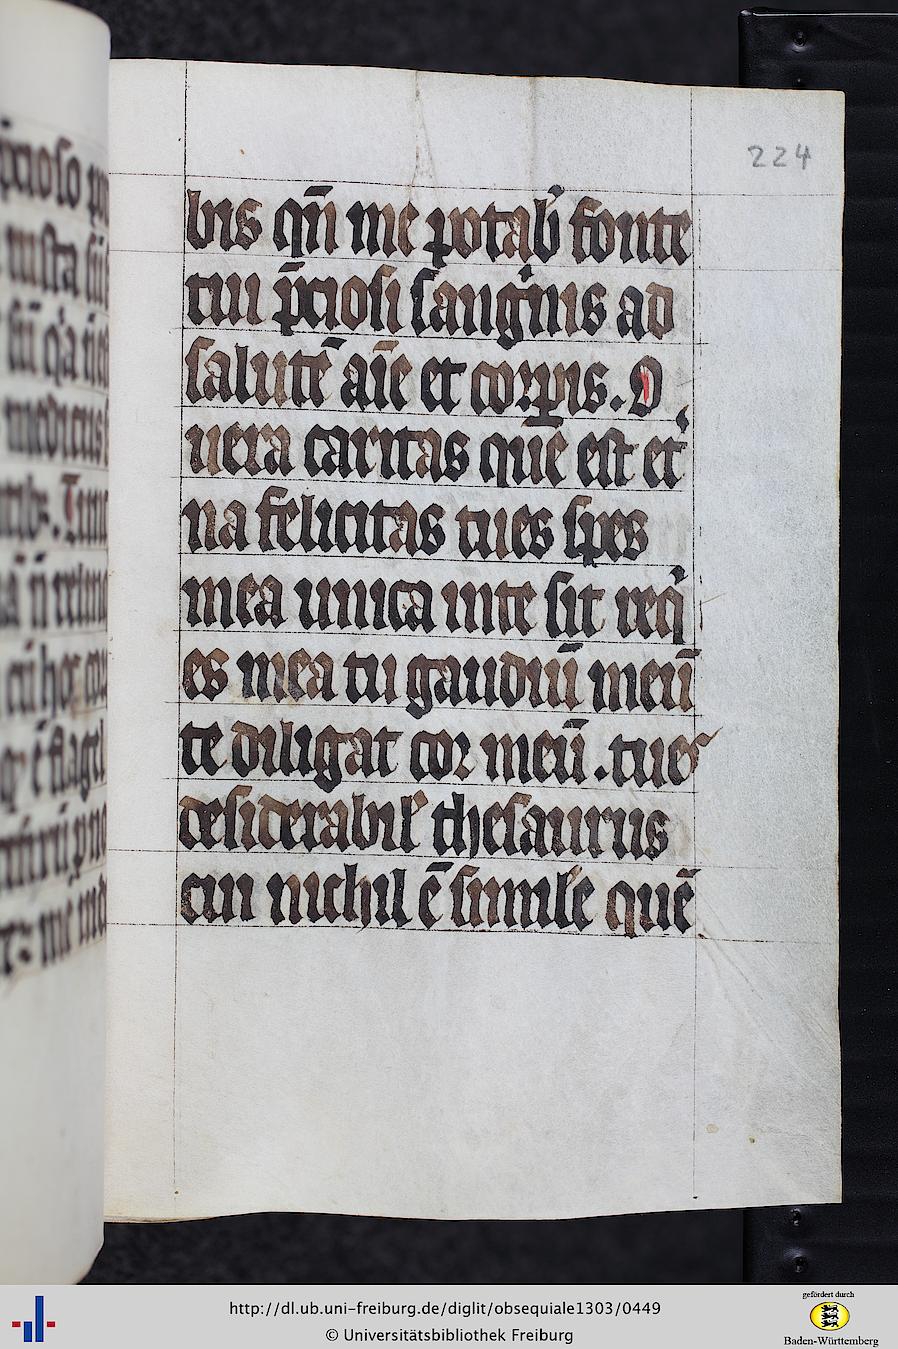 224
bis qn̄ me potab̾ fonte
tui p̄ciosi sangͥnis ad
salutē aīe et corꝑis. O
uera caritas que est et̾
na felicitas tu es spes
mea unica in te sit req̾
es mea tu gaudiū meū
te diligat cor meū . tu es
desiderabil̾ thesaurus
cui nichil ē simile quē
http://dl.ub.uni-freiburg.de/diglit/obsequiale1303/0449
© Universitätsbibliothek Freiburg
gefördert durch
Baden-Württemberg